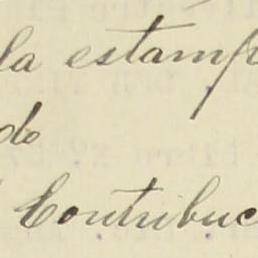 la estamp
do
Contribuc